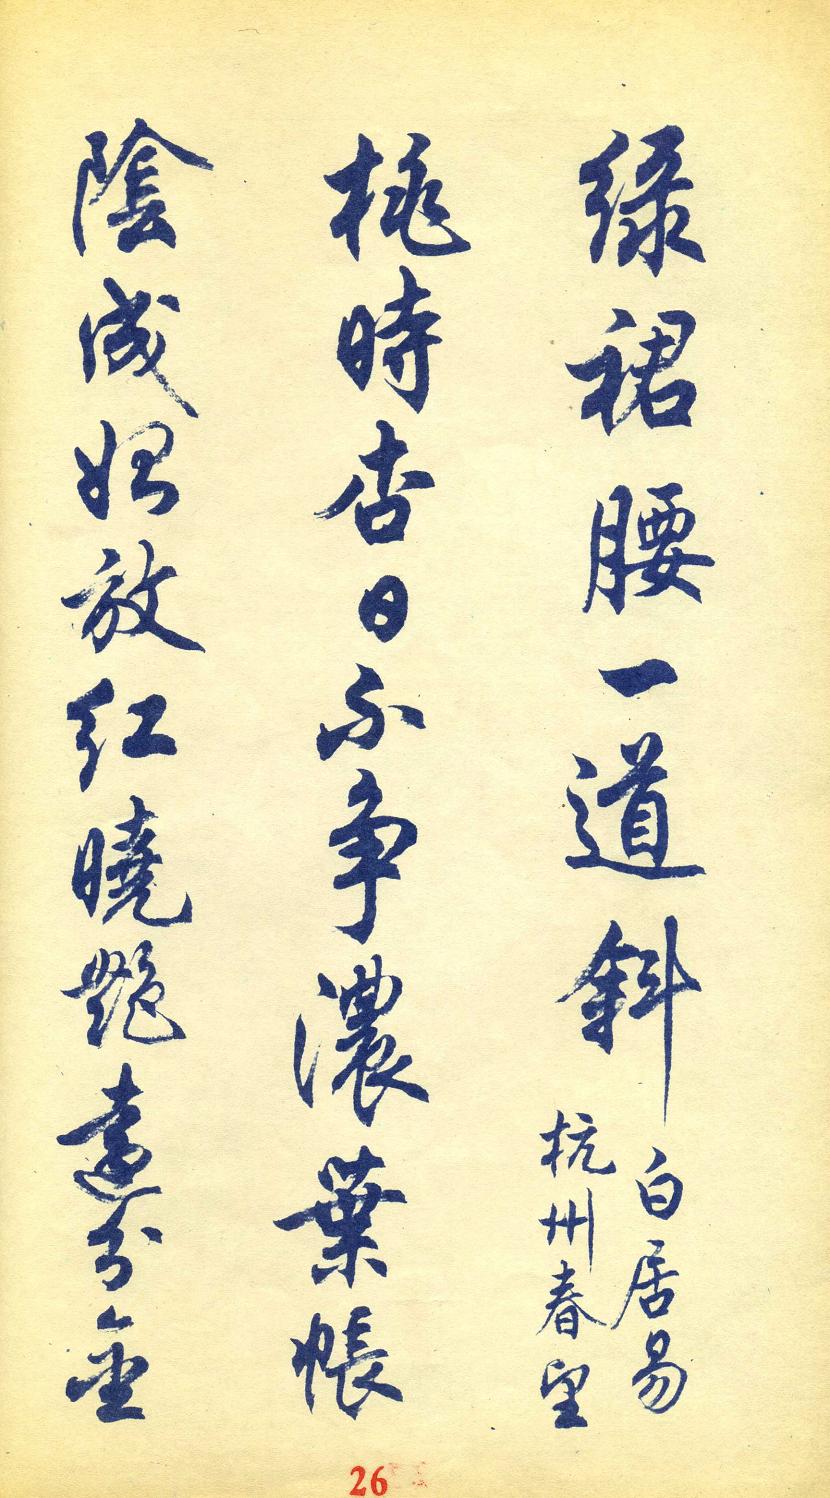 綠裙腰一道斜
白居易
杭州春望
桃時杏日不争濃葉帳
陰成始放紅曉艷遠分金
26